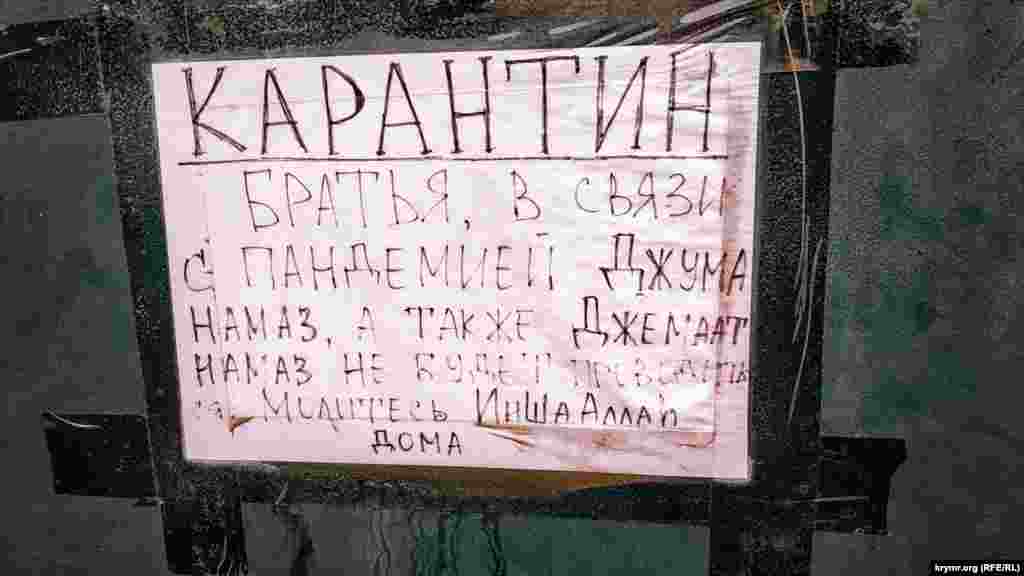 КАРАНТИН
БРАТЬЯ, В СВЯЗИ
С ПАНДЕМИЕЙ ДЖУМА
НАМАЗ, А ТАКЖЕ ДЖЕМААТ
НАМАЗ НЕ БУДЕТ
МОЛИТЕСЬ ИНШААЛЛАh
ДОМА
krymr.org (RFE/RL)